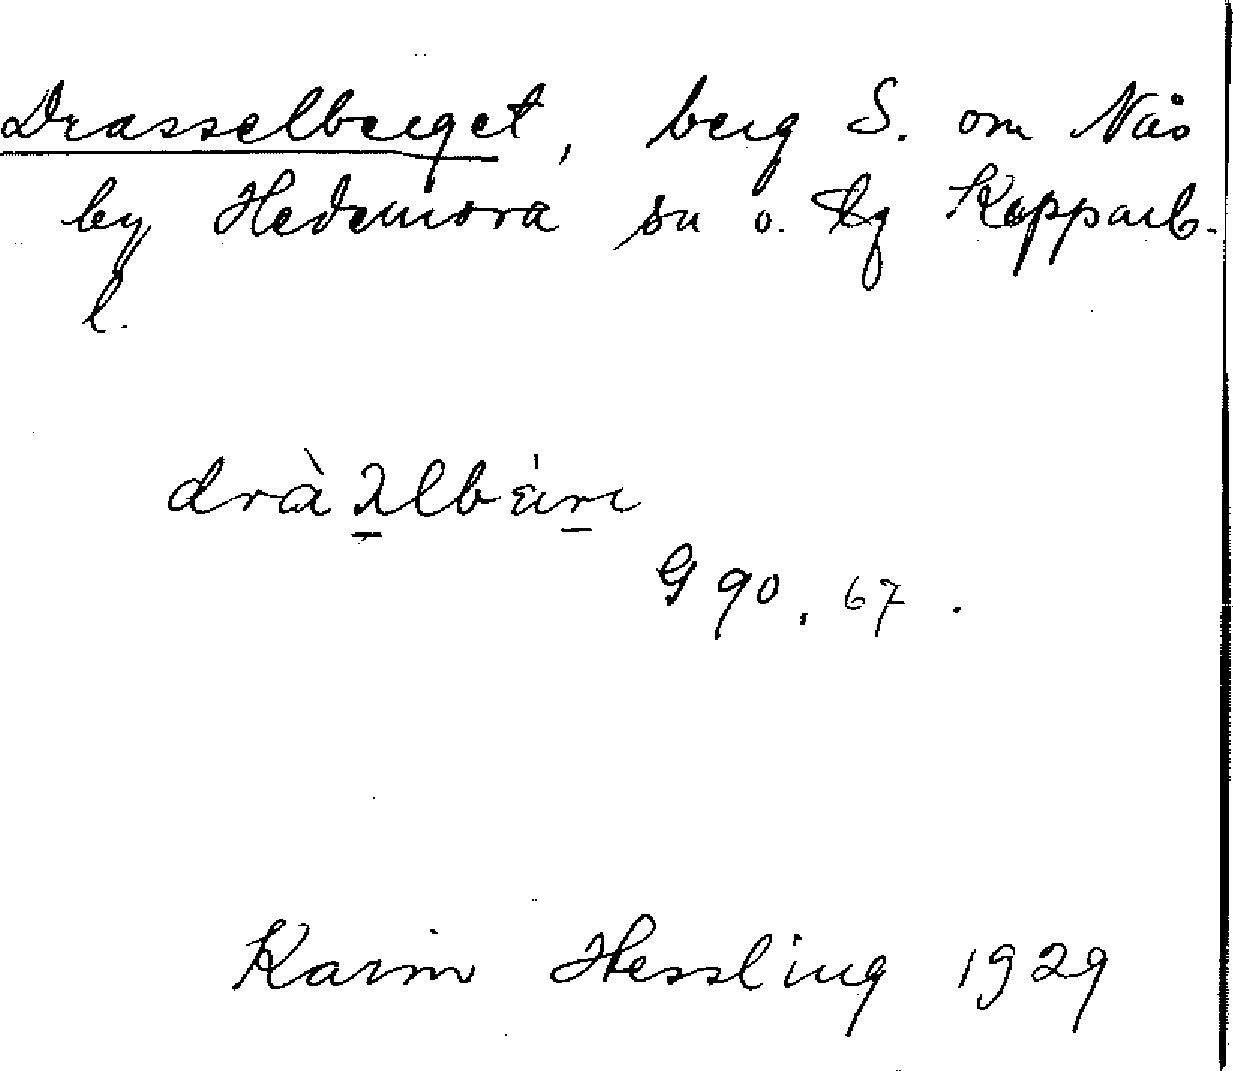 Drasselberget, berg S. om Näs
by Hedemora sn o. tg Kopparb.
l.
G 90, 67.
Karin Hessling 1929